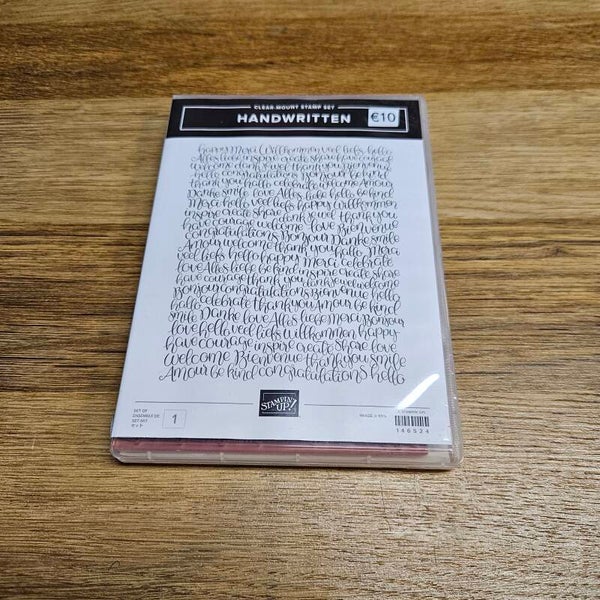 CLEAR-MOUNT STAMP SET
HANDWRITTEN
€10
happy Merci Willkommen veel liefs hello
Alles liebe inspire create share have courage
welcome dank je wel thank you Bienvenue
hello congratulations Bonjour be kind
thank you hallo celebrate welcome Amour
Danke smile love Alles liebe hello be kind
Merci hello veel liefs happy Willkommen
inspire create share dank je wel thank you
have courage welcome love Bienvenue
hello congratulations Bonjour Danke smile
Amour welcome thank you hallo Merci
veel liefs hello happy Merci celebrate
love Alles liebe be kind inspire create share
have courage thank you dank je wel welcome
Bonjour congratulations Bienvenue hello
hallo celebrate thank you Amour be kind
smile Danke love Alles liebe Merci Bonjour
love hello veel liefs Willkommen happy
have courage inspire create share love
Welcome Bienvenue thank you smile
Amour be kind congratulations hello
STAMPIN' UP!
SET OF
ENSEMBLE DE
SET MIT
セット
1
146524